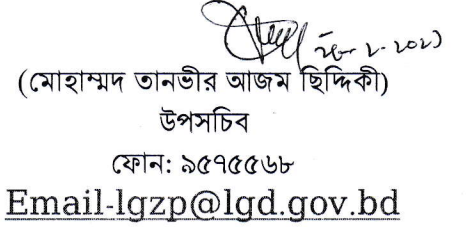 (মোহাম্মদ তানভীর আজম ছিদ্দিকী)
উপসচিব
ফোন: ৯৫৭৫৫৬৮
Email-lgzp@lgd.gov.bd